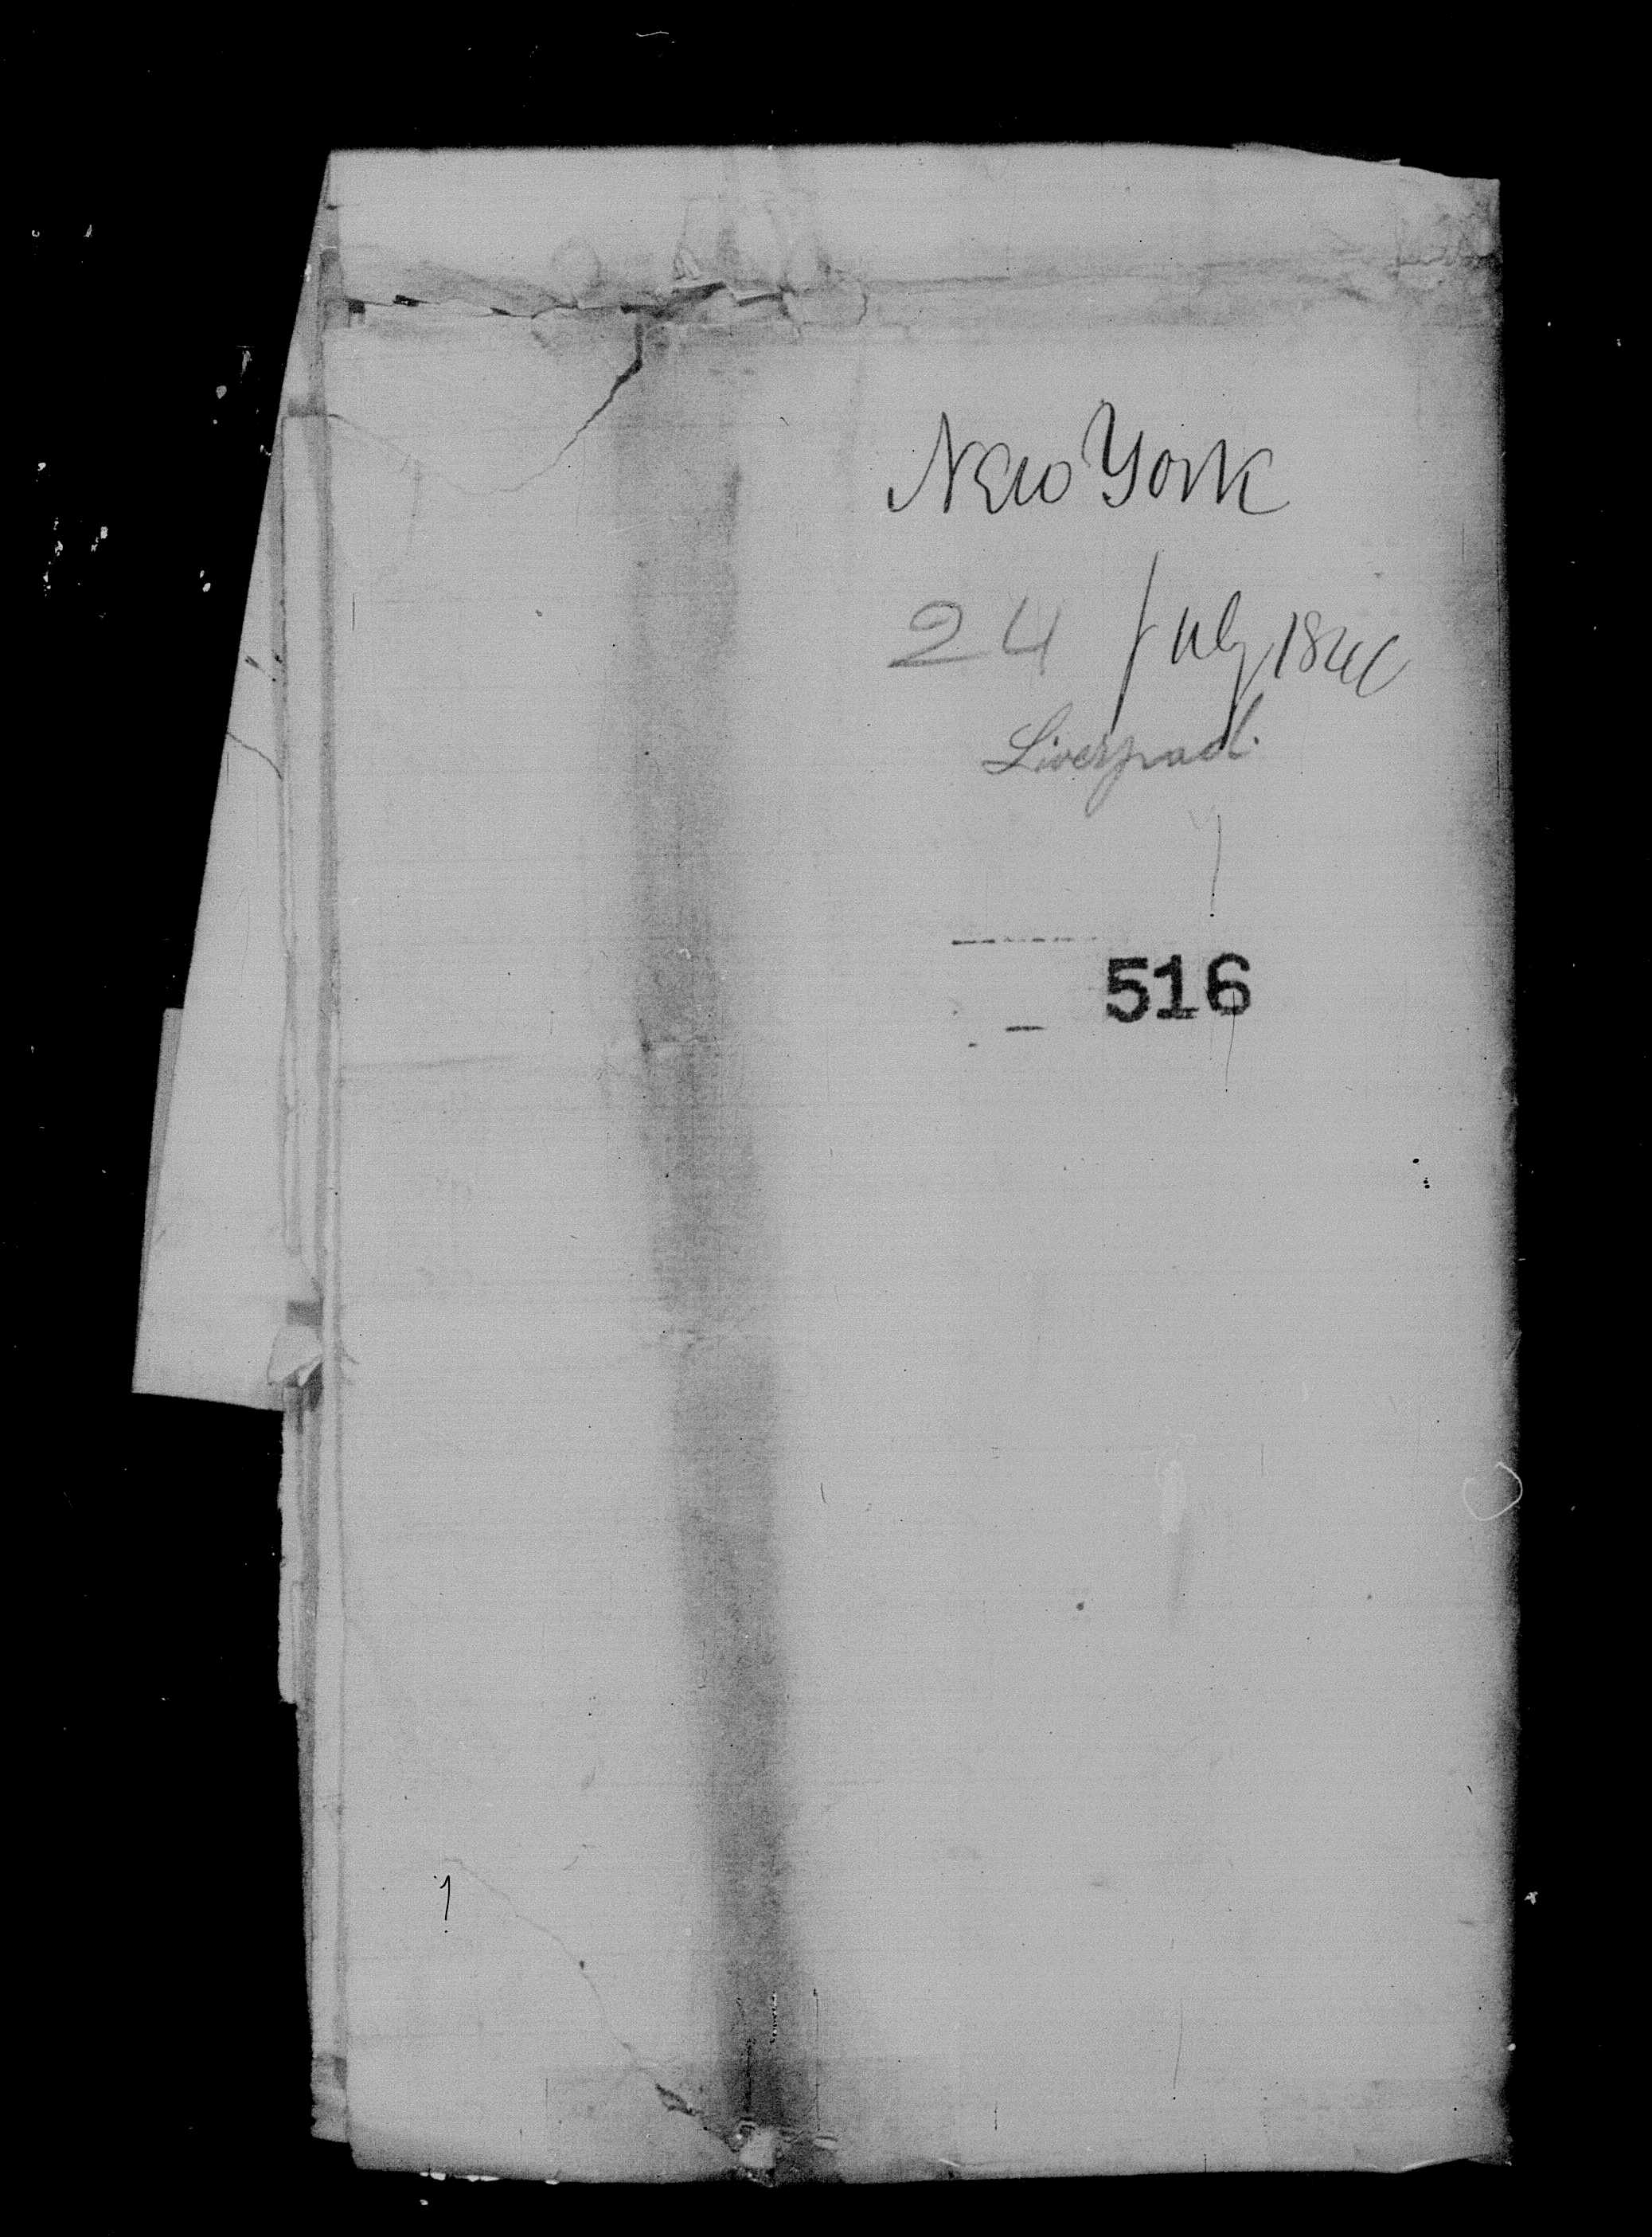 New York
24 July 1846
Liverpool.
516